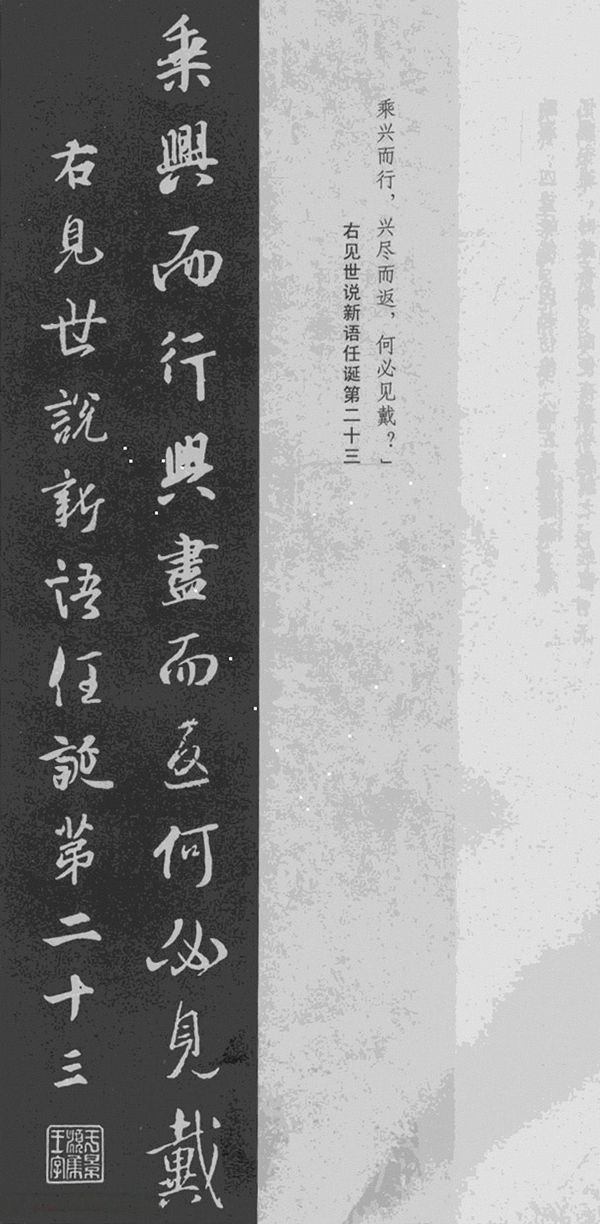 乘兴而行，兴尽而返，何必见戴？」
右见世说新语任诞第二十三
乘興而行興盡而返何必見戴
右見世說新語任誕第二十三